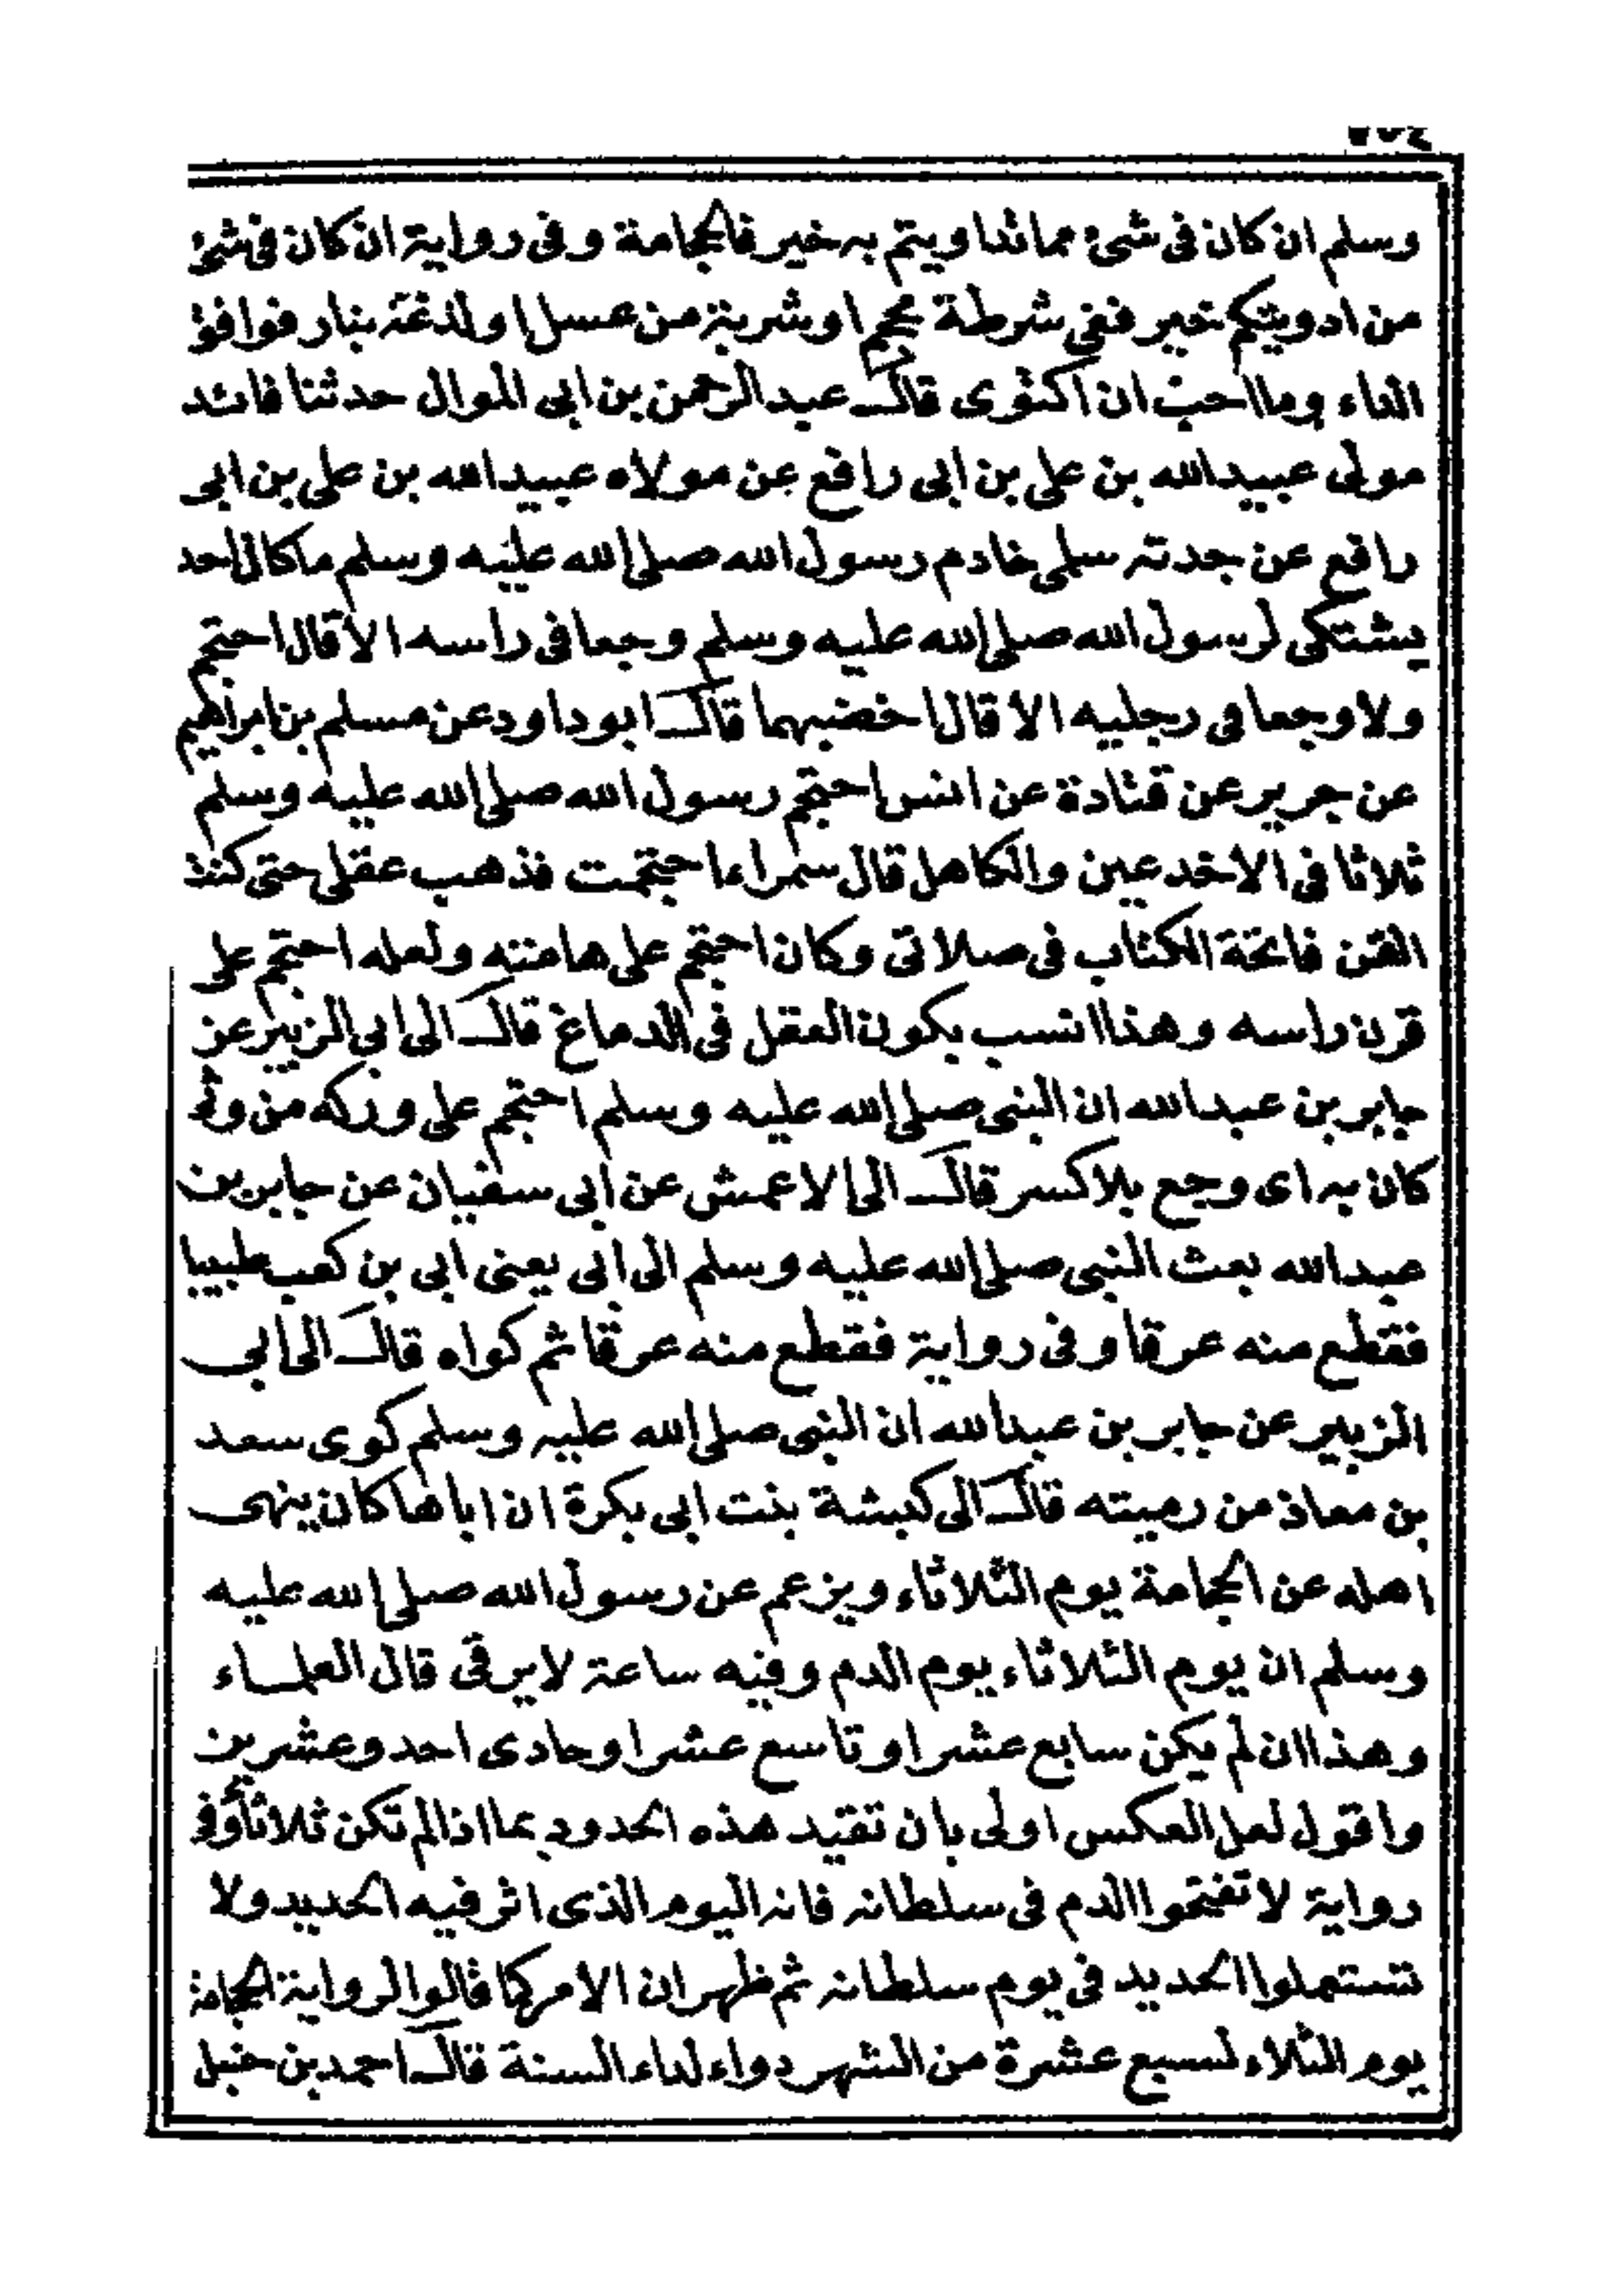 وسلم ان كان فى شئ مما تداويتم به خير فالحجامة وفى رواية ان كان فى شئ
من ادويتكم خير ففى شرطة محجم او شربة من عسل او لذغة بنار فوافق
الداء وما احب ان اكتوى قال عبد الرحمن بن ابى الموال حدثنا فائد
مولى عبيدالله بن على بن ابى رافع عن مولاه عبيدالله بن على بن ابى
رافع عن جدته سلمى خادم رسول الله صلى الله عليه وسلم ما كان احد
يشتكى لرسول الله صلى الله عليه وسلم وجعا فى راسه الا قال احتجم
ولا وجعا فى رجليه الا قال اخضبهما قال ابو داود عن مسلم بن ابراهيم
عن جرير عن قتادة عن انس احتجم رسول الله صلى الله عليه وسلم
ثلاثا فى الاخدعين والكاهل قال احتجمت فذهب عقلى حتى كنت
القن فاتحة الكتاب فى صلاتى وكان احتجم على هامته ولعله احتجم على
قرن راسه وهذا انسب بكون العقل فى الدماغ قال الى ابى الزبير عن
جابر بن عبدالله ان النبى صلى الله عليه وسلم احتجم على وركه من وثء
كان به اى وجع بلا كسر قال الى الاعمش عن ابى سفيان عن جابر بن
عبدالله بعث النبى صلى الله عليه وسلم الى ابى يعنى ابى بن كعب طبيبا
فقطع منه عرقا وفى رواية فقطع منه عرقا ثم كواه قال الى ابى
الزبير عن جابر بن عبدالله ان النبى صلى الله عليه وسلم كوى سعد
بن معاذ من رميته قال الى كبشة بنت ابى بكرة ان اباها كان ينهى
اهله عن الحجامة يوم الثلاثاء ويزعم عن رسول الله صلى الله عليه
وسلم ان يوم الثلاثاء يوم الدم وفيه ساعة لا يرقى قال العلماء
وهذا ان لم يكن سابع عشر او تاسع عشر او حادى احد وعشرين
واقول لعل العكس اولى بان تقيد هذه الحدود بما اذا لم تكن ثلاثاً وفى
رواية لا تفتحوا الدم فى سلطانه فانه اليوم الذى اثر فيه الحديد ولا
تستعملوا الحديد فى يوم سلطانه ثم ظهر ان الامر كما قالوا لرواية الحجامة
يوم الثلاء لسبع عشرة من الشهر دواء لداء السنة قال احمد بن حنبل